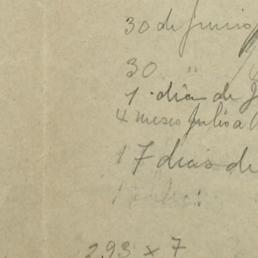 30 de Junio
30 "
1 dia de J
4 meses Julio a
17 dias de
293 x 7